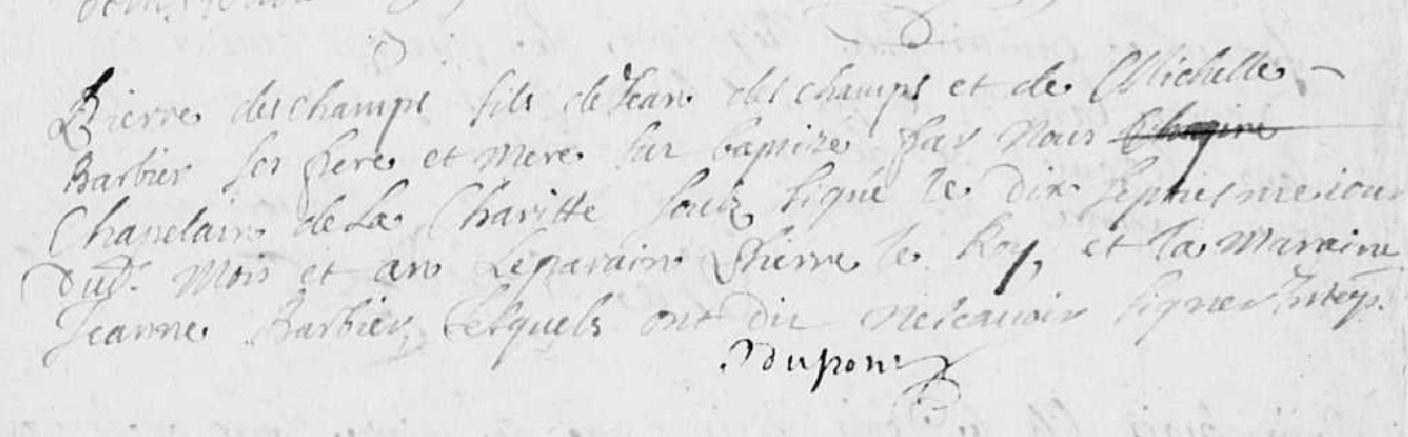 Pierre deschamps fils de Jean des champs et de Michelle
Barbier ses pere et mere fut baptizé par nous
Chapelain de La Charitte soubz signé le dix septiesme iour
dud. mois et an Le parain Pierre le Roy, et la maraine
Jeanne Barbier, lesquels ont dit ne scauoir signer
Dupont